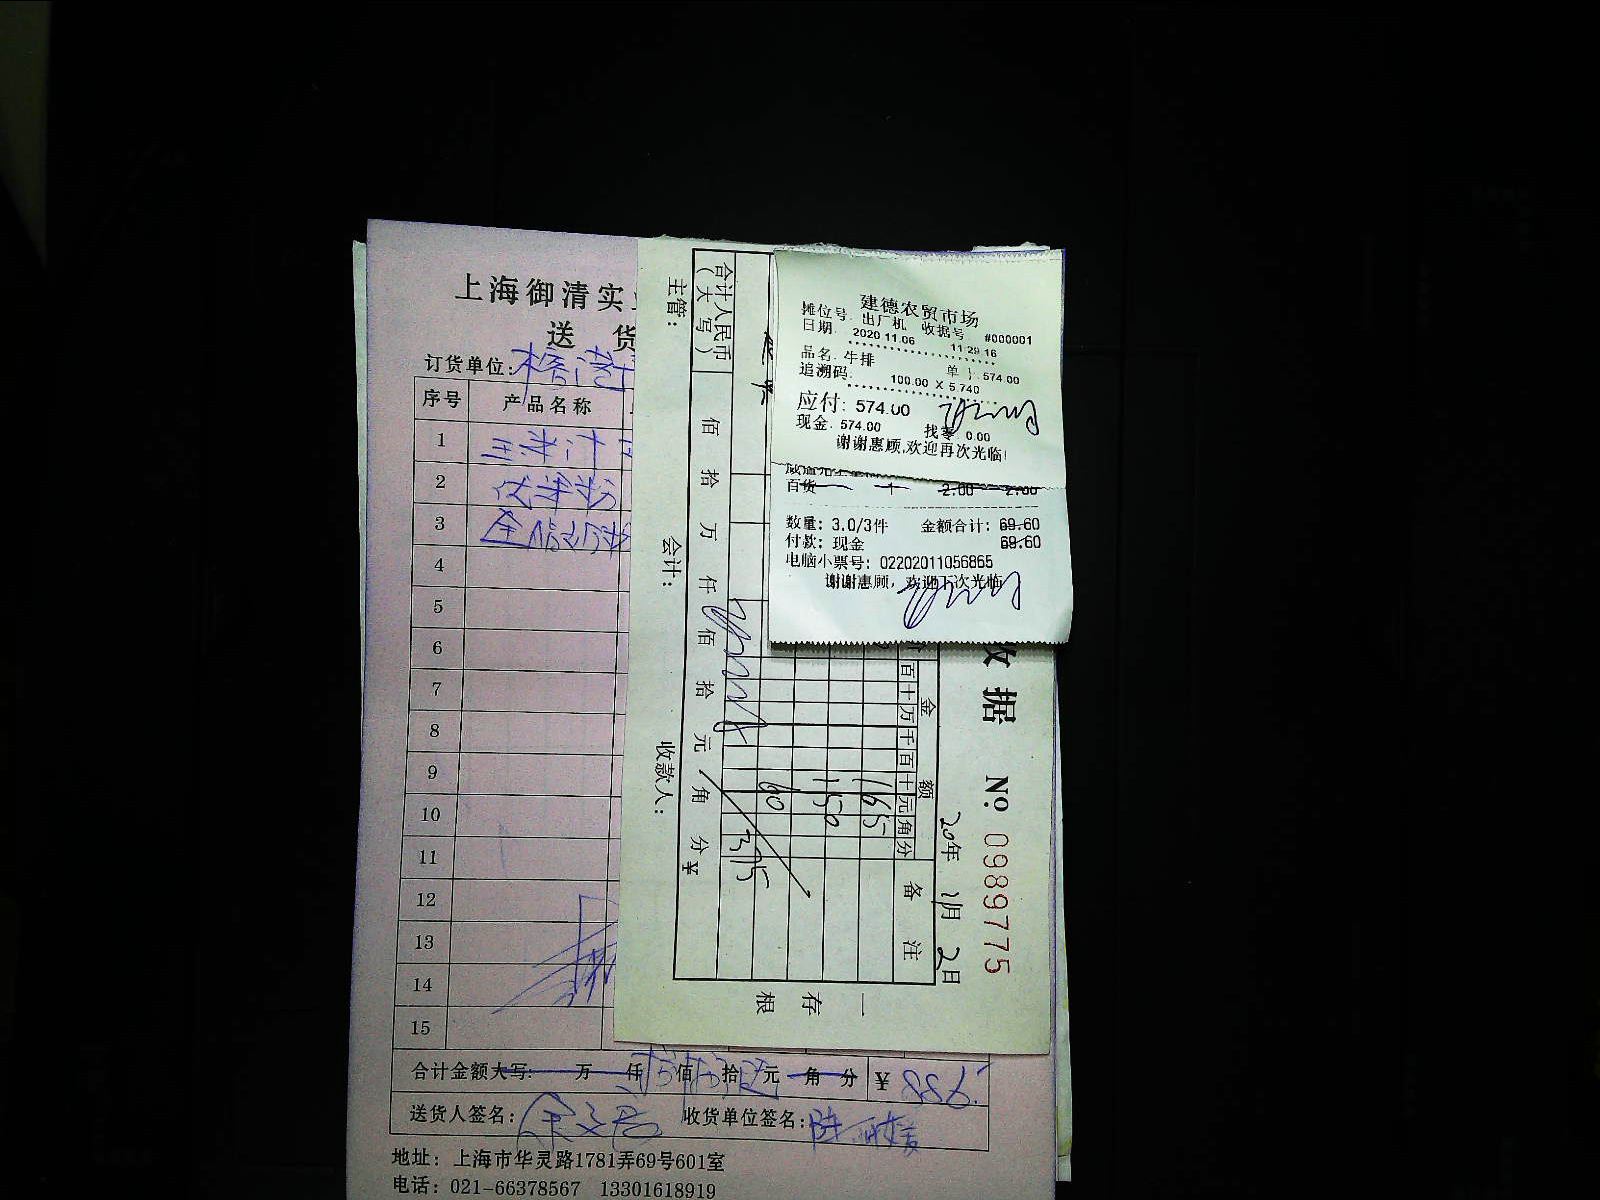 上海御清实
送 货
订货单位:
序号 产品名称
1
2 优牌粉
3 全脂奶粉
4
5
6
7
8
9
10
11
12
13
14
15
合计金额大写: 万 仟 佰 拾 元 角 分 ¥ 886.
送货人签名: 收货单位签名:
地址: 上海市华灵路1781弄69号601室
电话: 021-66378567 13301618919
收据 № 0989775
20年 11月 2日
金额 备注
百十万千百十元角分
165
150
60
合计人民币(大写) 佰 拾 万 仟 佰 拾 元 角 分 ¥ 375
主管: 会计: 收款人:
一存根
建德农贸市场
摊位号. 出厂机 收据号 #000001
日期. 2020 11.06 11:29 16
品名. 牛排 574.00
追溯码: 100.00 X 5.740
应付: 574.00
现金. 574.00 找零. 0.00
谢谢惠顾,欢迎再次光临!
百货 1 2.00 2.00
数量: 3.0/3件 金额合计: 69.60
付款: 现金 69.60
电脑小票号: 02202011056865
谢谢惠顾, 欢迎下次光临